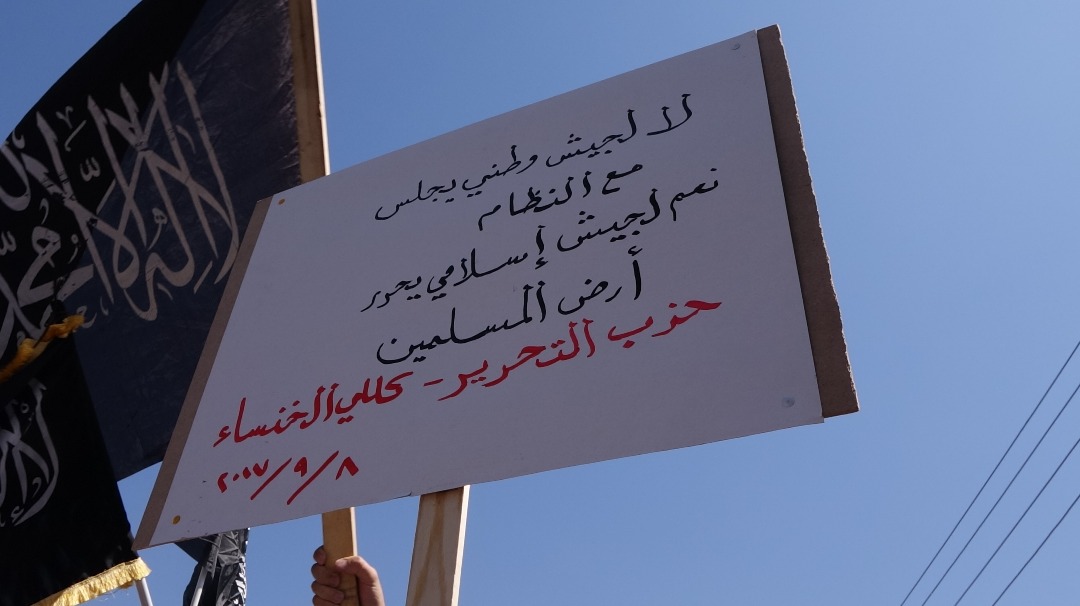 لا لجيش وطني يجلس
مع النظام
نعم لجيش إسلامي يحرر
أرض المسلمين
حزب التحرير - كللي الخنساء
٢٠١٧/٩/٨
لا إله إلا
محمد